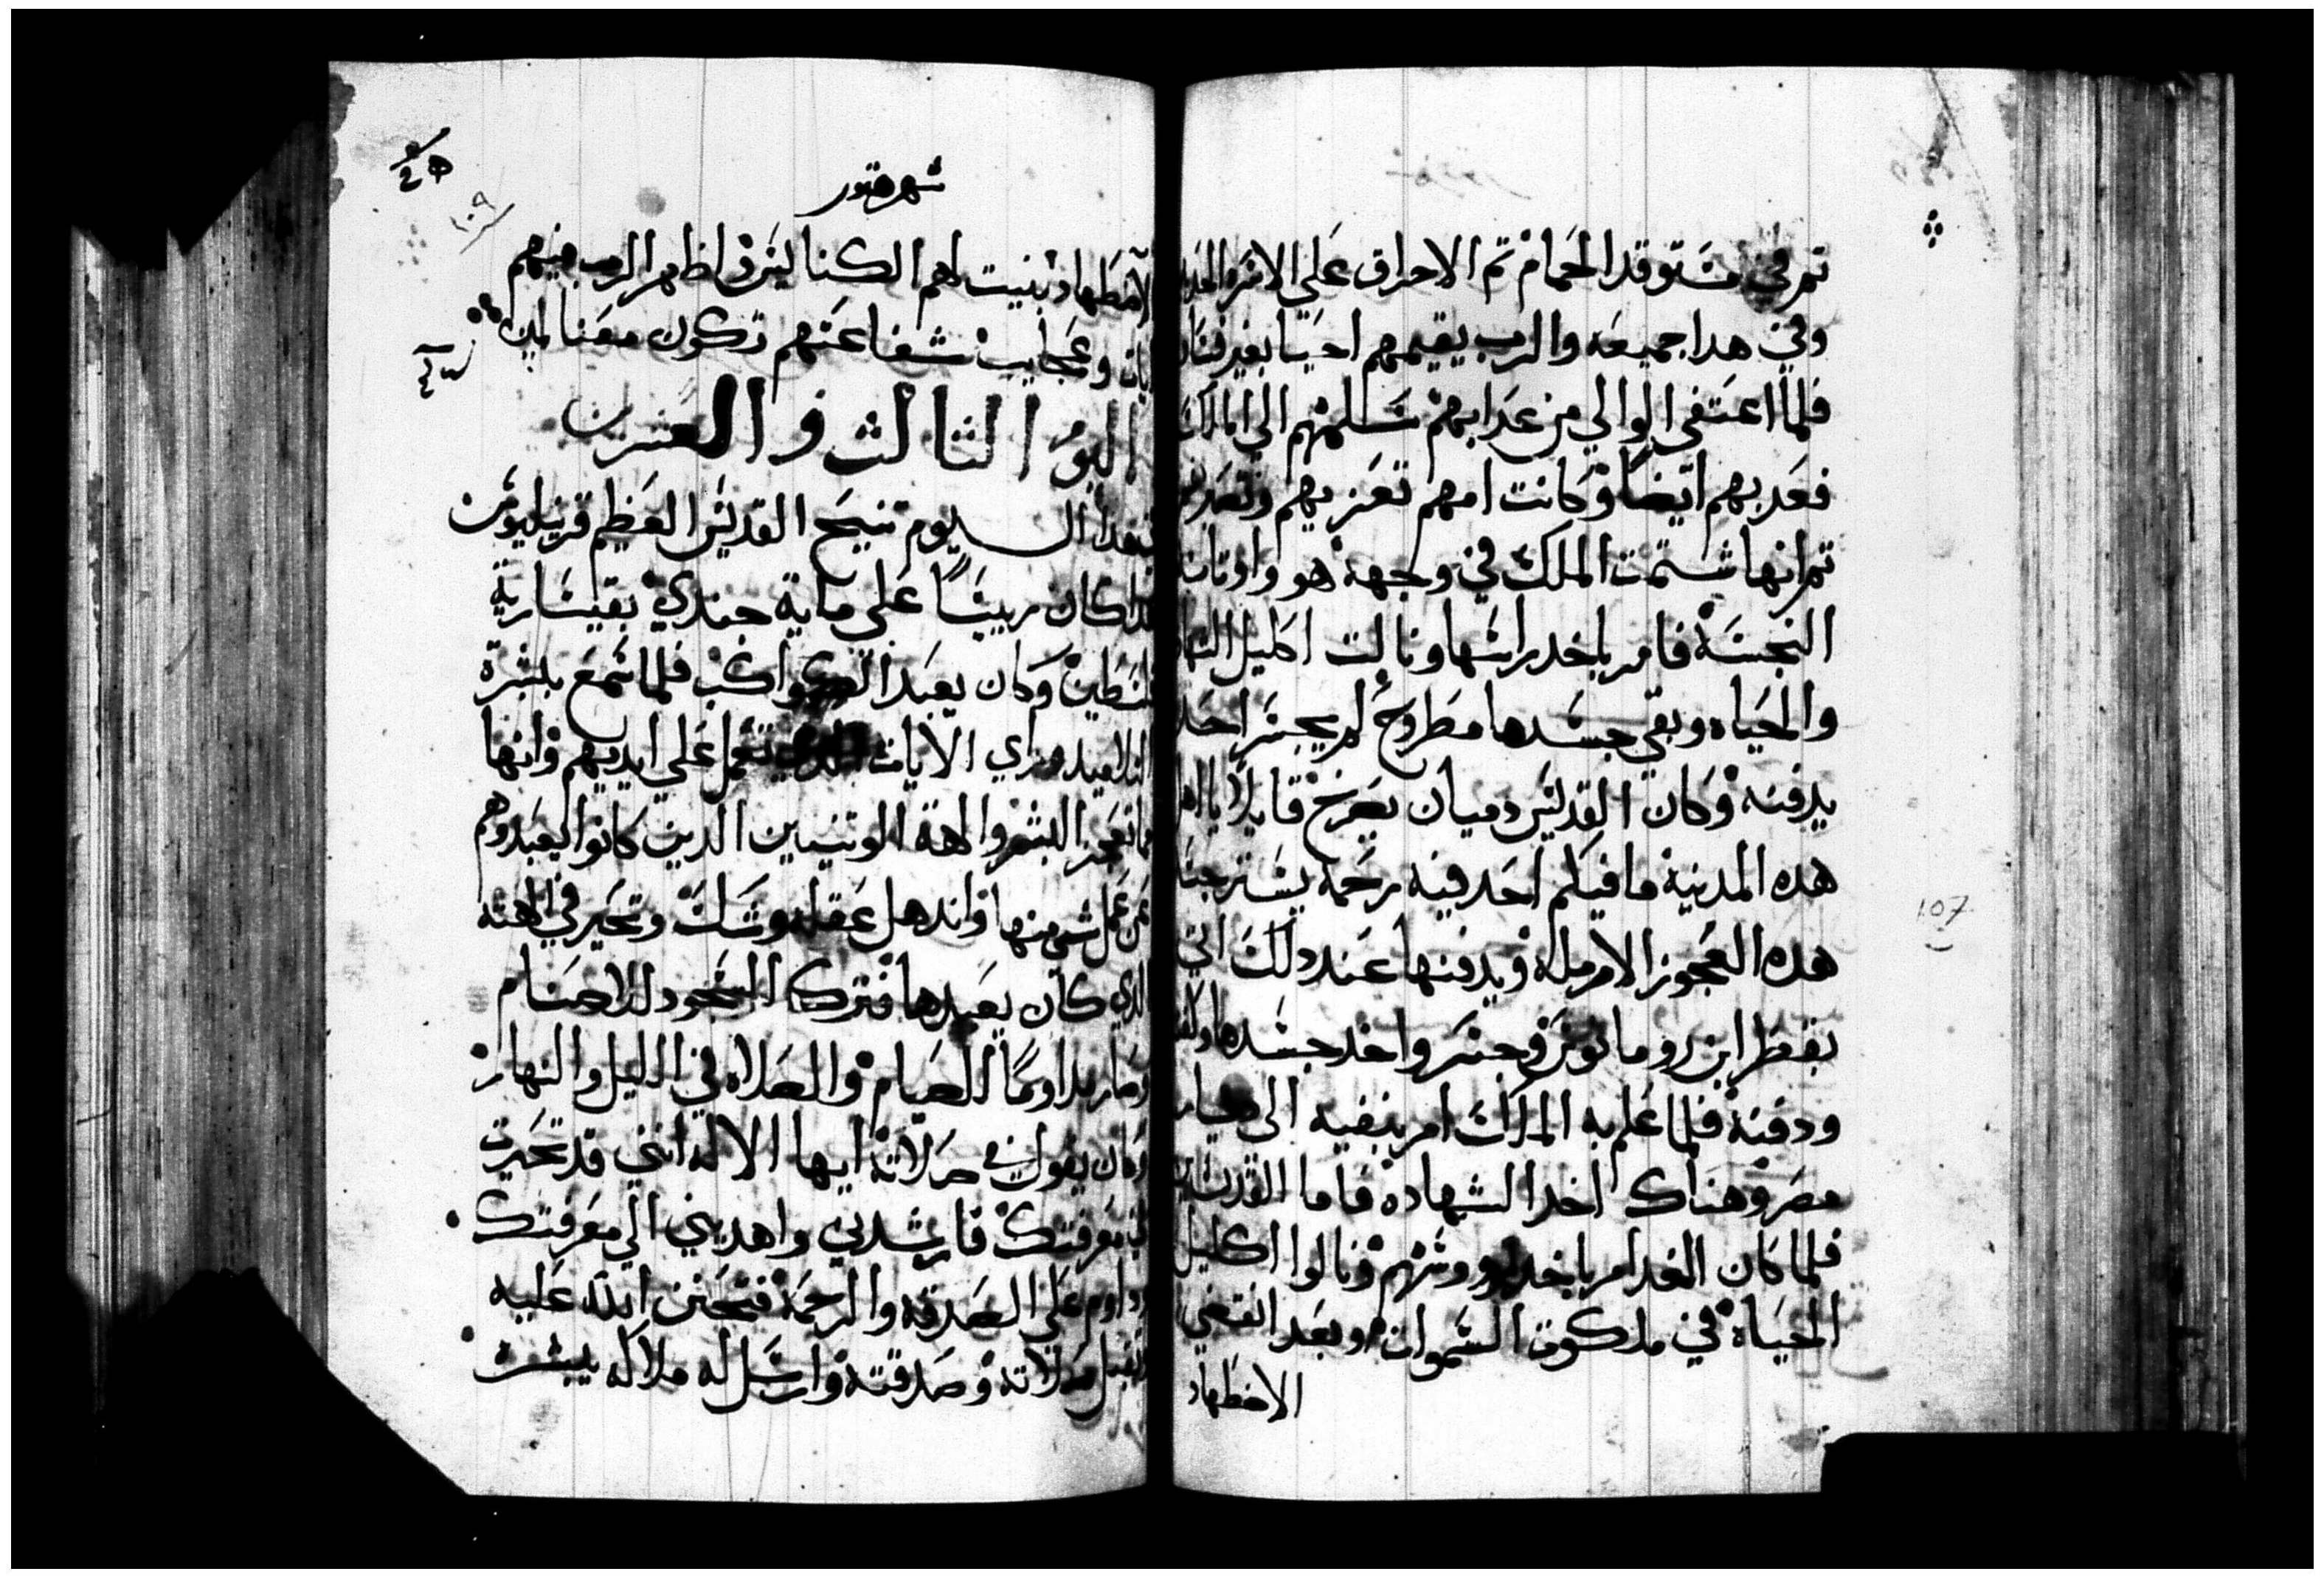 تم في مستوقد الحمام تم الاحراق علي الاسره الحديد
وفي هدا جميعه والرب يقيمهم احيا بغير فساد
فلما اعتفي الوالي من عدابهم سلمهم الي الملك
فعدبهم ايضا وكانت امهم تعزيهم وتصبرهم
تم انها شتمت الملك في وجهه هو واوتانه
النجسه فامر باخد راسها ونالت اكليل الشهاده
والحياه وبقي جسدها مطروح لم يجسر احد
يدفنه وكان القديس دميان يصرخ قايلا يا اهل
هده المدينه ما فيكم احد فيه رحمه يستر جسد
هده العجوز الارمله ويدفنها عند دلك اتي
بقطر ابن رومانوس وجسر واخد جسدها وكفنه
ودفنه فلما علم به الملك امر بنفيه الي ديار
مصر وهناك اخد الشهاده فاما القديسين
فلما كان الغد امر باخد روسهم ونالوا اكليل
الحياه في ملكوت السموات وبعد انقضي
الاضطهاد
107
شهر هتور
١٠٩
الاضطهاد بنيت لهم الكنايس واظهر الرب فيهم
ايات وعجايب شفاعتهم تكون معنا امين
اليوم الثالث والعشرين
في هدا اليوم تنيح القديس العظيم قرنيليوس
هدا كان رييسا علي ماية جندي بقيسارية
فلسطين وكان يعبد الكواكب فلما سمع بلشرة
التلاميد وراي الايات التي تعمل علي ايديهم وانها
مما تعجز البشر والهة الوتنيين الدين كانوا يعبدوهم
عن عمل شي منها واندهل عقله وشك وتحير في الهته
الدي كان يعبدها فترك السجود للاصنام
وصار مداوما للصيام والصلاه في الليل والنهار
وكان يقول في صلاته ايها الاله انني قد تحيرت
في معرفتك فارشدني واهديني الي معرفتك
وداوم علي الصدقه والرحمه فتحنن الله عليه
وقبل صلاته وصدقته وارسل له ملاكه يبشره